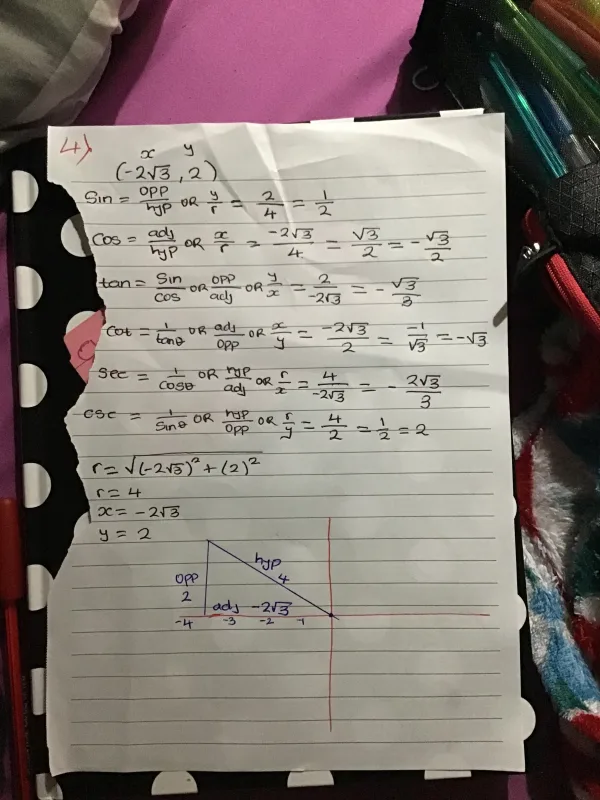 4)
x y
(-2√3, 2)
Sin = opp/hyp OR y/r = 2/4 = 1/2
Cos = adj/hyp OR x/r = -2√3/4 = √3/2 = -√3/2
tan = Sin/cos OR opp/adj OR y/x = 2/-2√3 = -√3/3
cot = 1/tanθ OR adj/opp OR x/y = -2√3/2 = -1/√3 = -√3
Sec = 1/cosθ OR hyp/adj OR r/x = 4/-2√3 = -2√3/3
csc = 1/Sinθ OR hyp/opp OR r/y = 4/2 = 1/2 = 2
r = √(-2√3)² + (2)²
r = 4
x = -2√3
y = 2
hyp
4
opp
2
adj -2√3
-4 -3 -2 -1